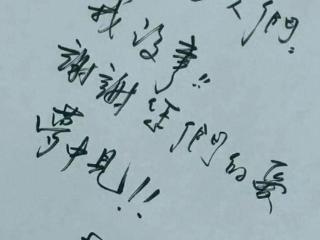 人們。
我沒事!!
謝謝你們的愛
夢中見!!